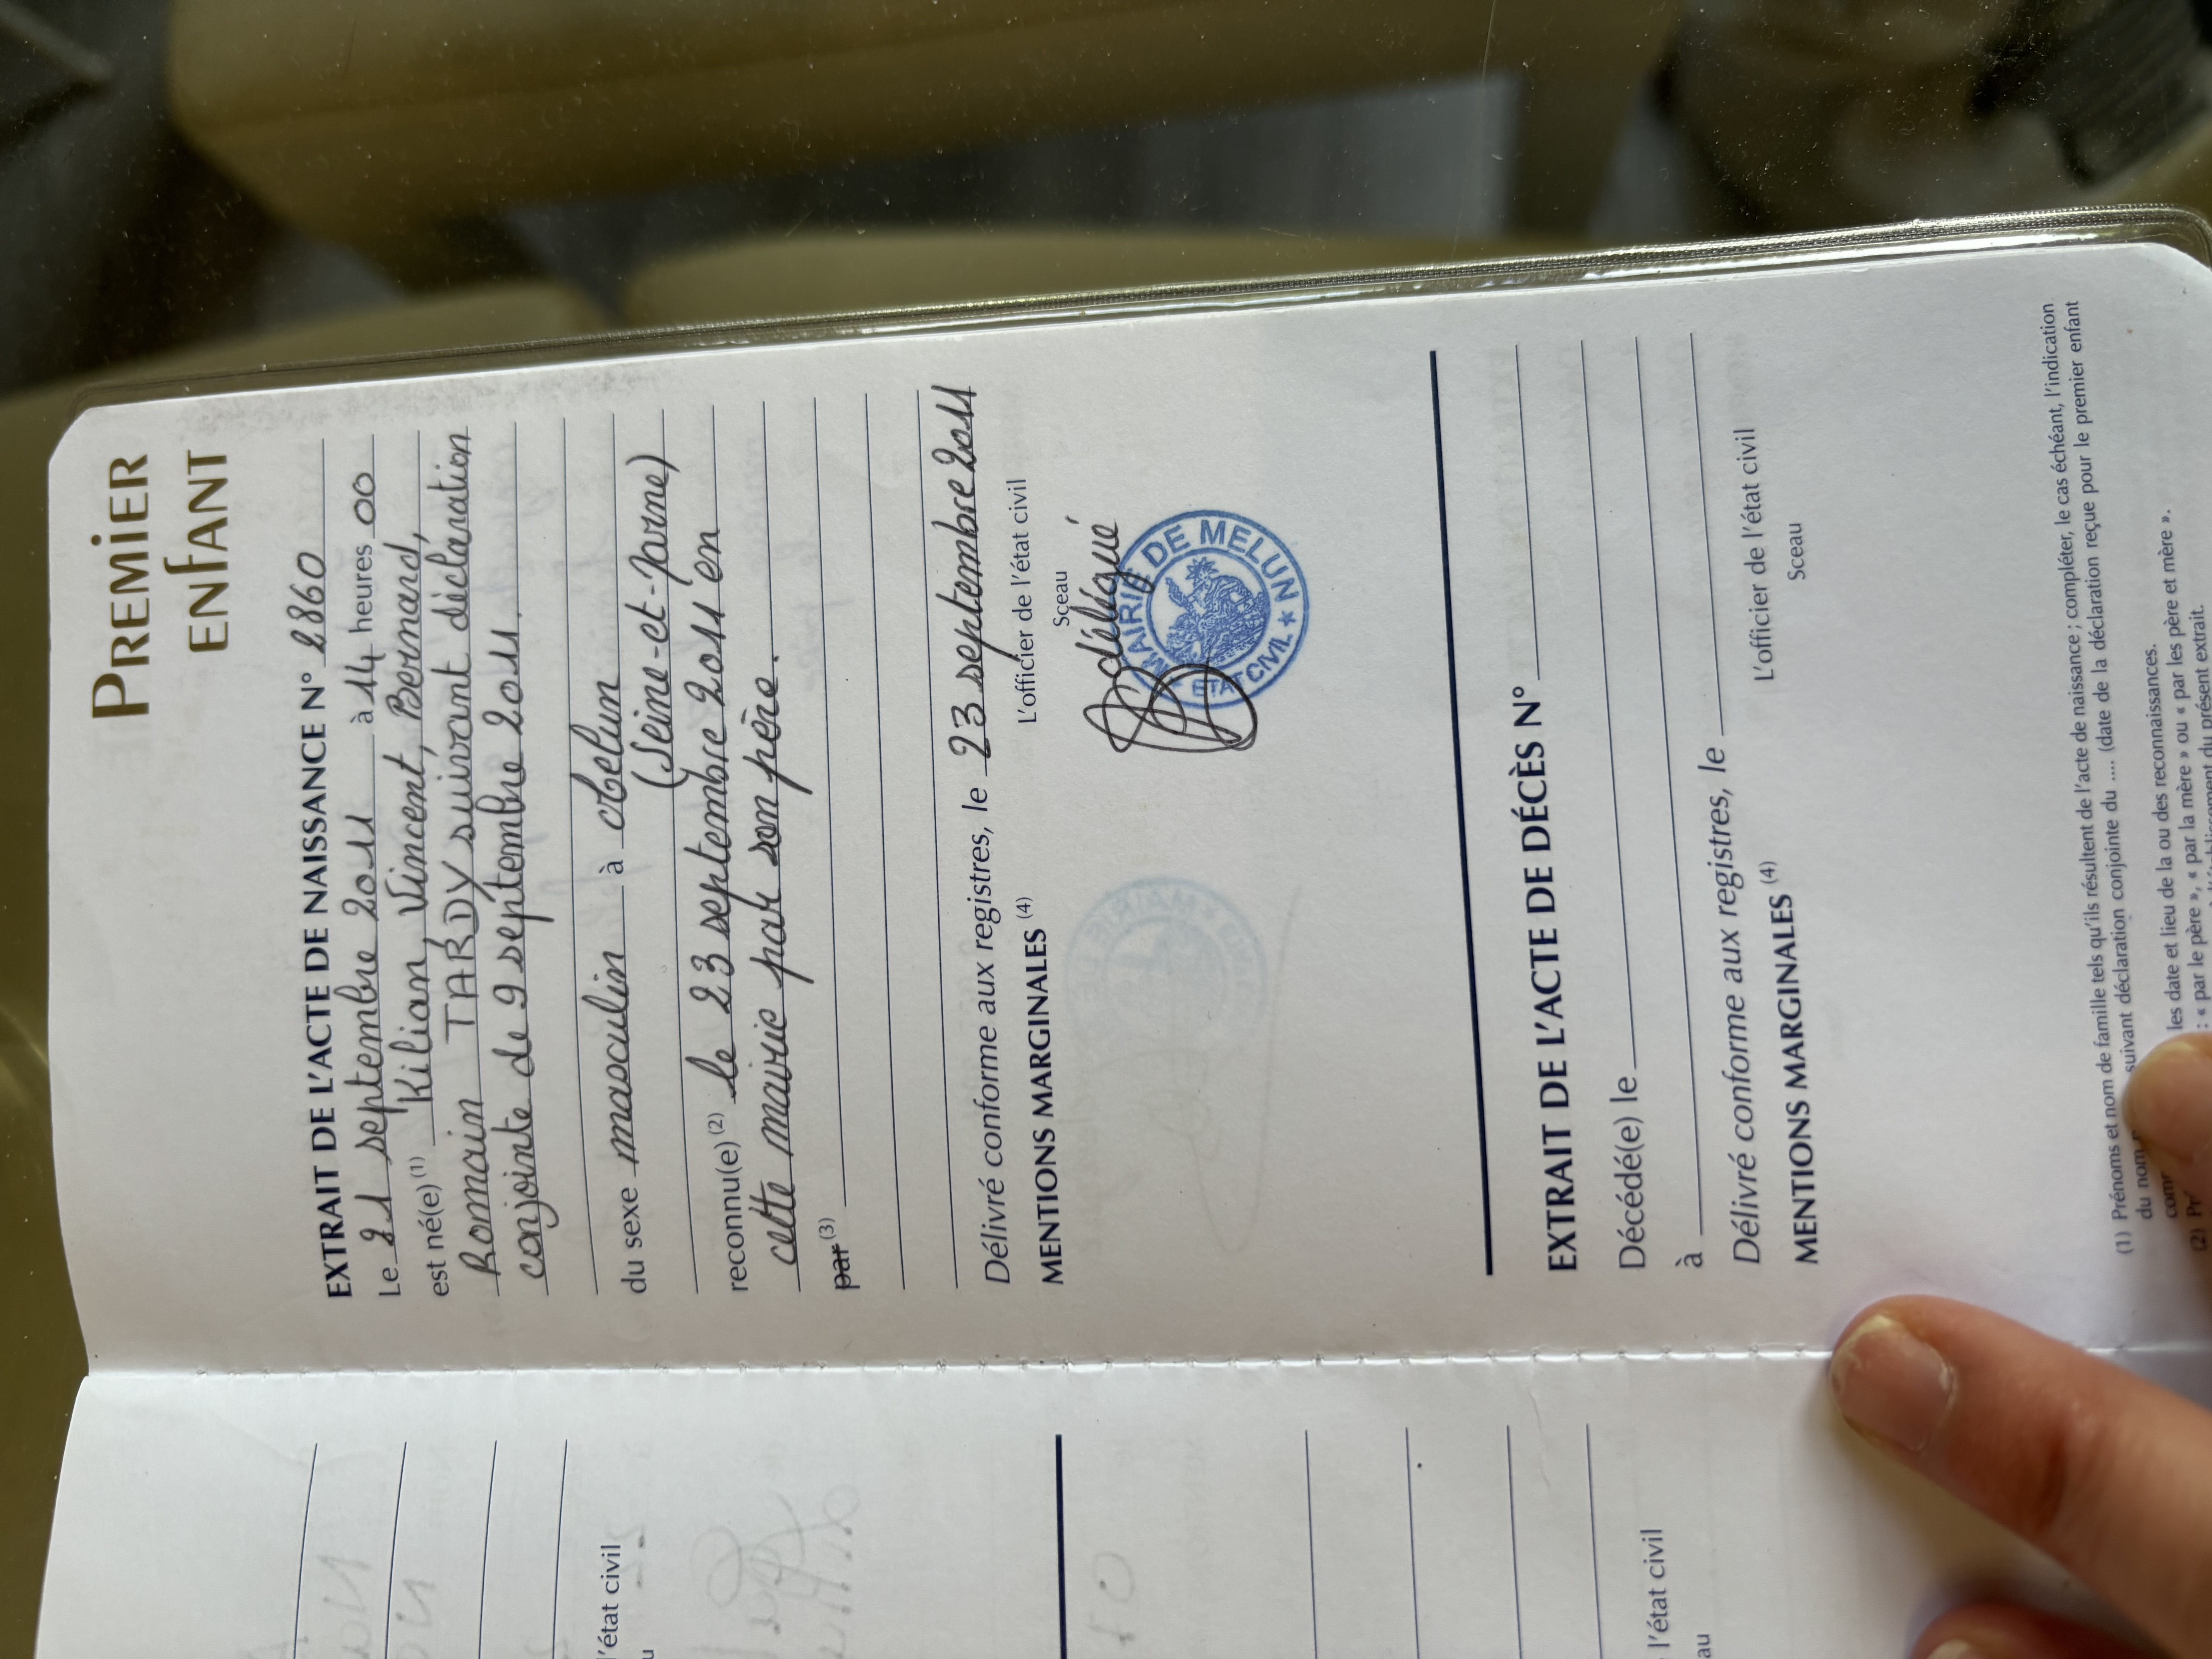 PREMIER
ENFANT
EXTRAIT DE L'ACTE DE NAISSANCE N° 2860
Le 21 septembre 2011 à 14 heures 00
est né(e) (1) Kilian, Vincent, Bernard,
Romain TARDY suivant déclaration
conjointe de 9 septembre 2011.
du sexe masculin à Melun
(Seine-et-Marne)
reconnu(e) (2) le 23 septembre 2011 en
cette mairie par son père.
par (3)
Délivré conforme aux registres, le 23 septembre 2011
MENTIONS MARGINALES (4)
L'officier de l'état civil
Sceau
délégué
MAIRIE DE MELUN
ETAT CIVIL
EXTRAIT DE L'ACTE DE DÉCÈS N°
Décédé(e) le
à
Délivré conforme aux registres, le
MENTIONS MARGINALES (4)
L'officier de l'état civil
Sceau
(1) Prénoms et nom de famille tels qu'ils résultent de l'acte de naissance ; compléter, le cas échéant, l'indication
du nom suivant déclaration conjointe du .... (date de la déclaration reçue pour le premier enfant
(2) les date et lieu de la ou des reconnaissances.
: « par le père », « par la mère » ou « par les père et mère ».
du présent extrait.
l'état civil
l'état civil